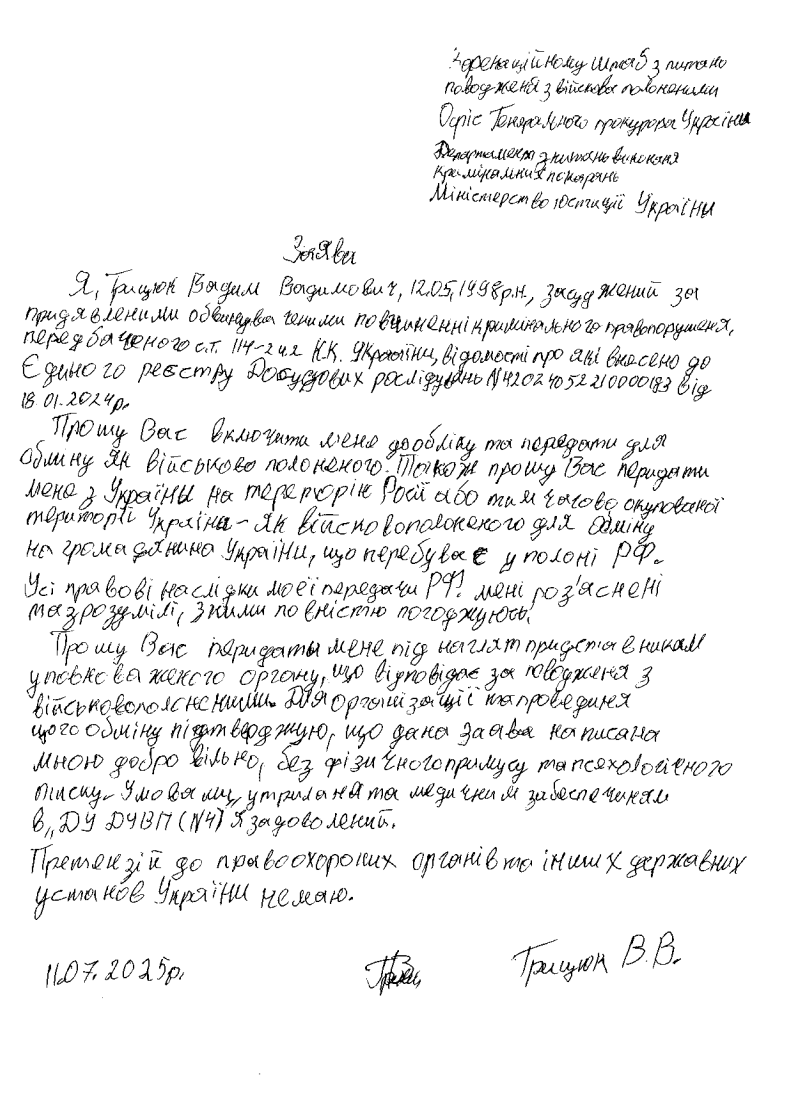 Коренаційному штаб з питань
поводженя з військово полоненими
Офіс Генерального прокурора України
Департамент з питань виконаня
кримінальних покарань
Міністерство юстиції України
Заява
Я, Грицюк Вадим Вадимович, 12.05.1998р.н., засуджений за
придявленими обвинувачиними по вчиненні кримінального правопорушеня,
передбаченого с.т. 114-2 ч.2 К.К. України, відомості про які внесено до
Єдиного реєстру Досудових рослідувань №42024052210000183 від
18.01.2024р.
Прошу Вас включити мене до обліку та передати для
обміну як військово полоненого. Також прошу Вас перидати
мене з України на територію Росії або тимчасово окупованої
території України - як військовополоненого для обміну
на громадянина України, що перебуває у полоні РФ.
Усі правові наслідки моєї передачи РФ. мені роз'яснені
та зрозумілі, з ними повністю погоджуюсь.
Прошу Вас перидаты мене під нагляд придставникам
уповноваженого органу, що відповідає за поводженя з
військовополоненими. Для організації та провединя
цього обміну підтверджую, що дана заява написана
мною добровільно, без фізичного примусу та псяхологічного
тиску. Умовами, утриманя та медичним забеспечиням
в „ДУ ДУВП (№4) я задоволений.
Претензій до правоохороних органів та інших державних
установ України немаю.
11.07.2025р.
Грицюк В.В.